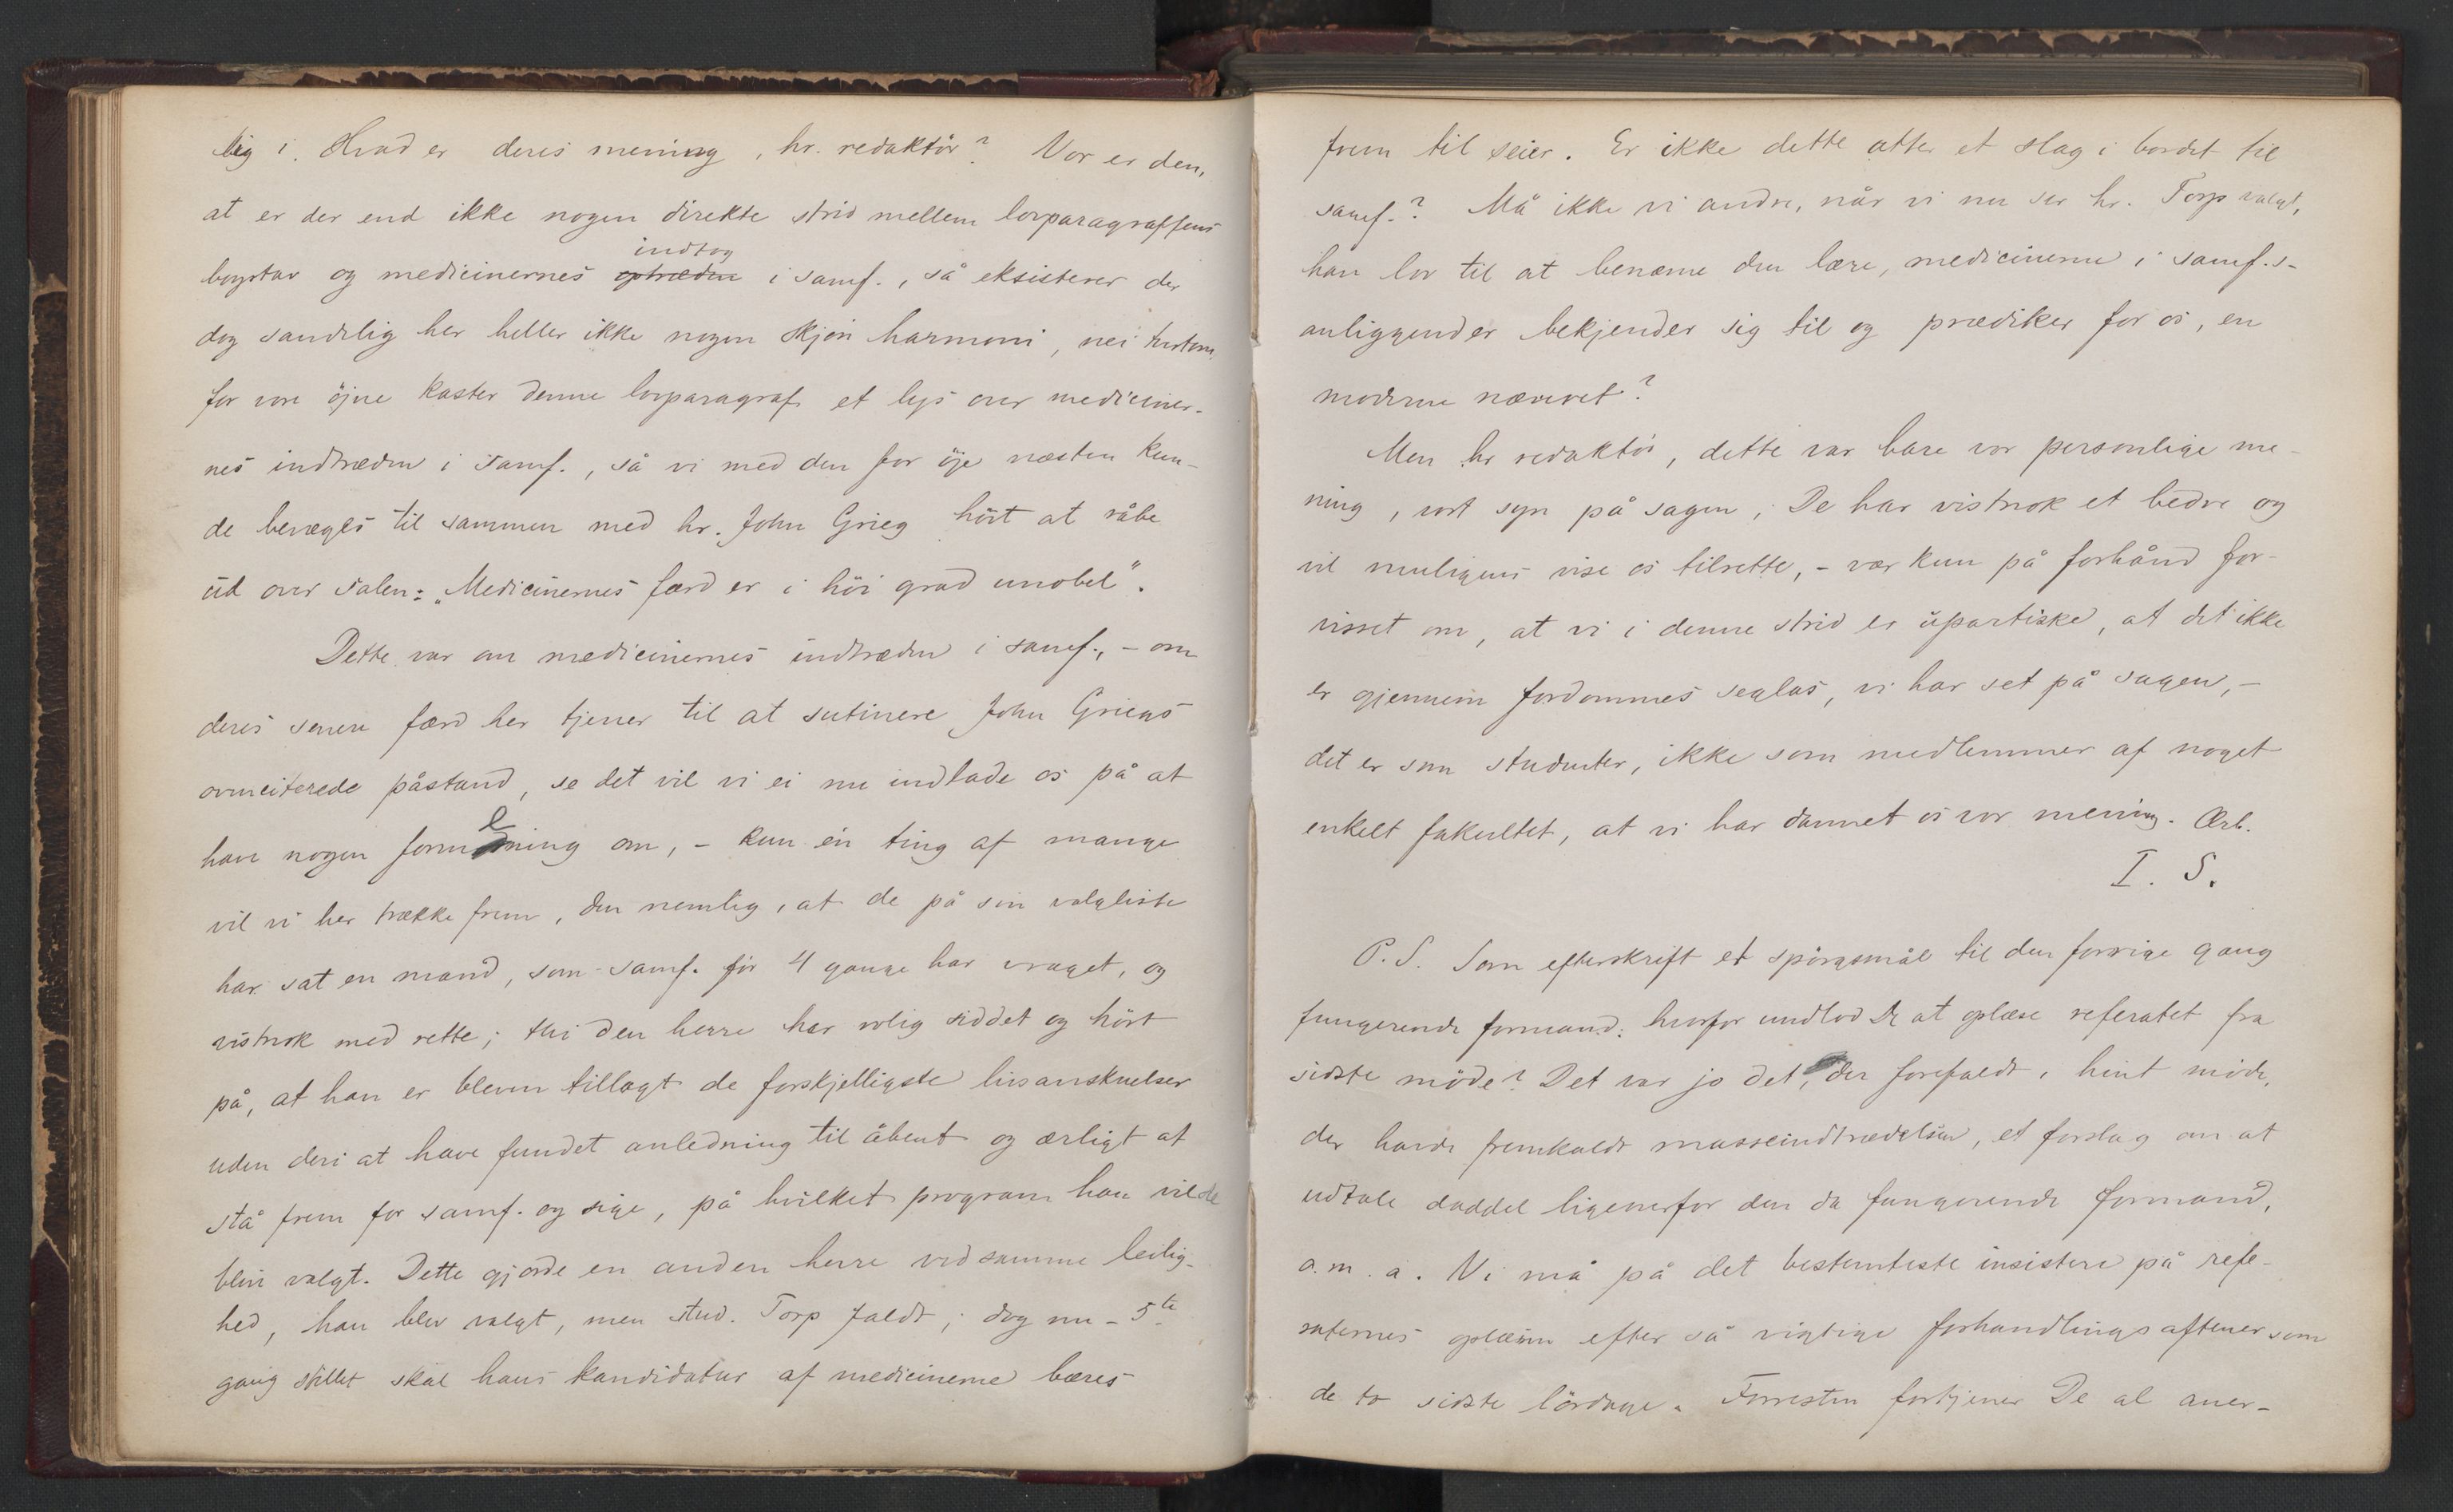 lig i. Hvad er deres mening, hr. redaktör? Vor er den,
at er der end ikke nogen direkte strid mellem lovparagraffens
indtog
bogstav og medicinernes optræden i samf., så eksisterer der
dog sandelig her heller ikke nogen skjön harmoni, nei tvertom
for vore öjne kaster denne lovparagraf et lys over mediciner-
nes indtræden i samf., så vi med den for öje næsten kun-
de bevæges til sammen med hr. John Grieg höit at råbe
ud over salen: „Medicinernes færd er i höi grad unobel".
Dette var om medicinernes indtræden i samf., - om
deres senere færd her tjener til at sutinere John Griegs
ovenciterede påstand, se det vil vi ei nu indlade os på at
have nogen formening om, - kun én ting af mange
vil vi her trække frem, den nemlig, at de på sin valgliste
har sat en mand, som samf. för 4 gange har vraget, og
vistnok med rette; thi den herre har rolig siddet og hört
på, at han er bleven tillagt de forskjelligste livsanskuelser
uden deri at have fundet anledning til åbent og ærligt at
stå frem for samf. og sige, på hvilket program han vilde
blive valgt. Dette gjorde en anden herre ved samme leilig-
hed, han blev valgt, men stud. Torp faldt; dog nu - 5te
gang stillet skal hans kandidatur af medicinerne bæres
frem til seier. Er ikke dette atter et slag i bordet til
samf.? Må ikke vi andre, når vi nu ser hr. Torp valgt,
have lov til at benævne den lære, medicinerne i samf.s-
anliggender bekjender sig til og prædiker for os, en
moderne næveret?
Men hr redaktör, dette var bare vor personlige me-
ning, vort syn på sagen; De har vistnok et bedre og
vil muligens vise os tilrette, - vær kun på forhånd for-
visset om, at vi i denne strid er upartiske, at det ikke
er gjennem fordommes seglas, vi har set på sagen, -
det er som studenter, ikke som medlemmer af noget
enkelt fakultet, at vi har dannet os vor mening. Ærb.
I. S.
P.S. Som efterskrift et spörgsmål til den forrige gang
fungerende formand: hvorfor undlod De at oplæse referatet fra
sidste möde? Det var jo det, der forefaldt i hint möde,
der havde fremkaldt masseindtrædelsen, et forslag om at
udtale daddel ligeoverfor den da fungerende formand,
o.m.a. Vi må på det bestemteste insistere på refe-
raternes oplæsen efter så vigtige forhandlingsaftener som
de to sidste lördage. Forresten fortjener De al aner-